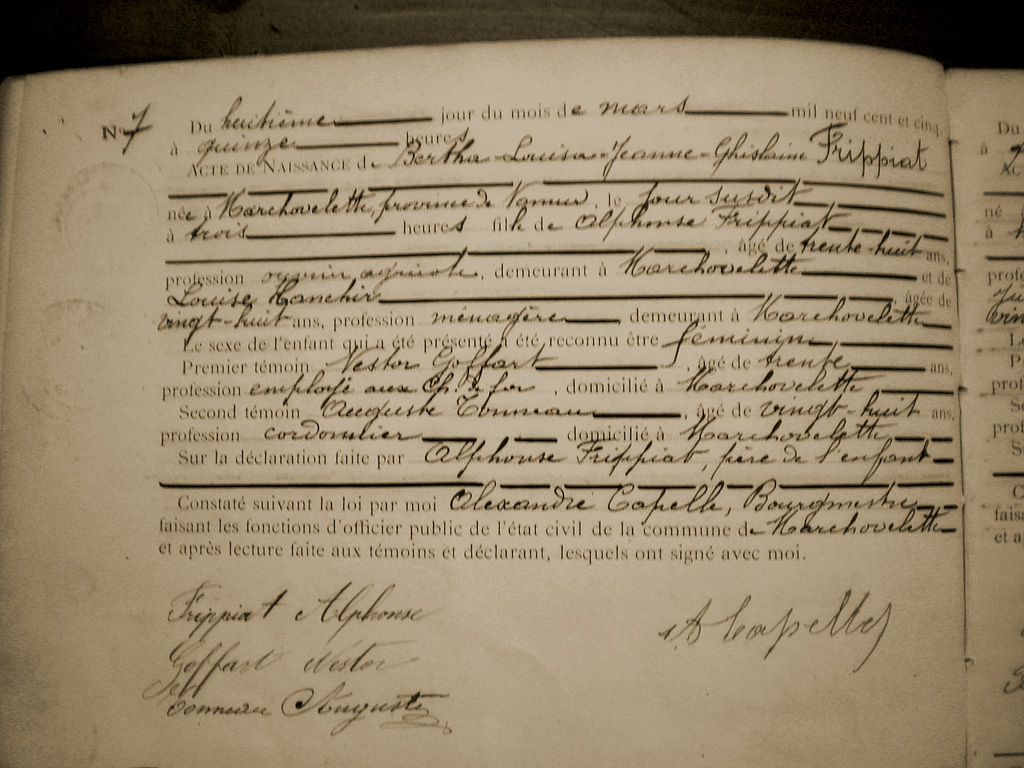 No 7
Du huitième jour du mois de mars mil neuf cent et cinq,
à quinze heures
ACTE DE NAISSANCE de Bertha-Louisa-Jeanne-Ghislaine Frippiat
née à Marchovelette, province de Namur, le jour susdit
à trois heures fille de Alphonse Frippiat
, âgé de trente-huit ans,
profession ouvrier agricole, demeurant à Marchovelette et de
Louise , âgée de
vingt-huit ans, profession ménagère demeurant à Marchovelette
Le sexe de l'enfant qui a été présenté a été reconnu être féminin
Premier témoin Nestor Goffart , âgé de trente ans,
profession employé aux Ch. de fer , domicilié à Marchovelette
Second témoin Auguste Tonneau , âgé de vingt-huit ans,
profession cordonnier domicilié à Marchovelette
Sur la déclaration faite par Alphonse Frippiat, père de l'enfant
Constaté suivant la loi par moi Alexandre Capelle, Bourgmestre
faisant les fonctions d'officier public de l'état civil de la commune de Marchovelette
et après lecture faite aux témoins et déclarant, lesquels ont signé avec moi.
Frippiat Alphonse
A Capelle
Goffart Nestor
Tonneau Auguste